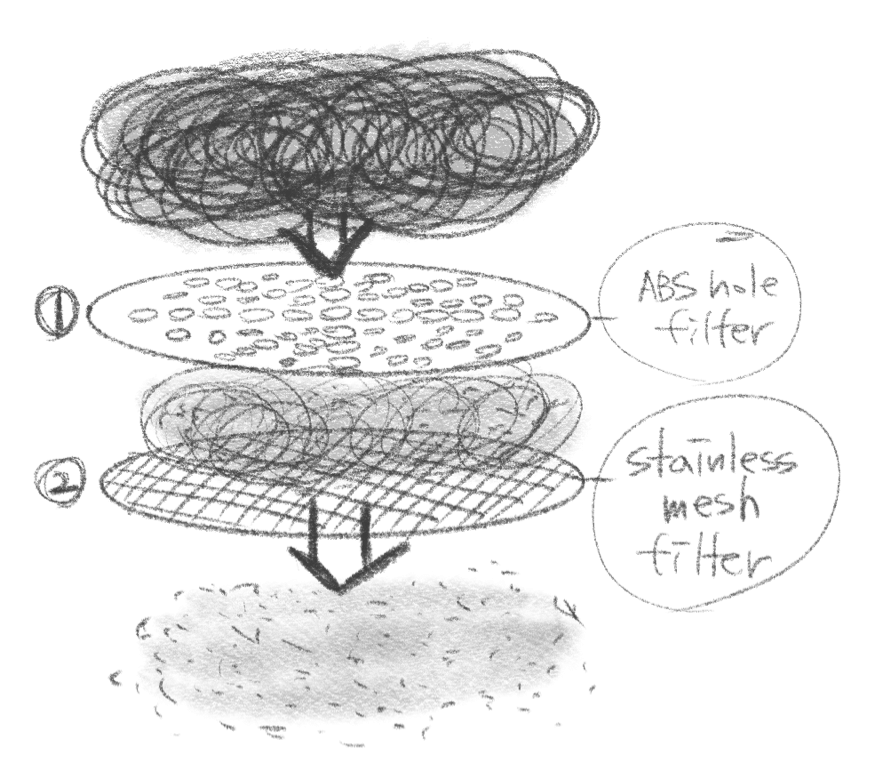 ①
ABS hole
filter
②
stainless
mesh
filter